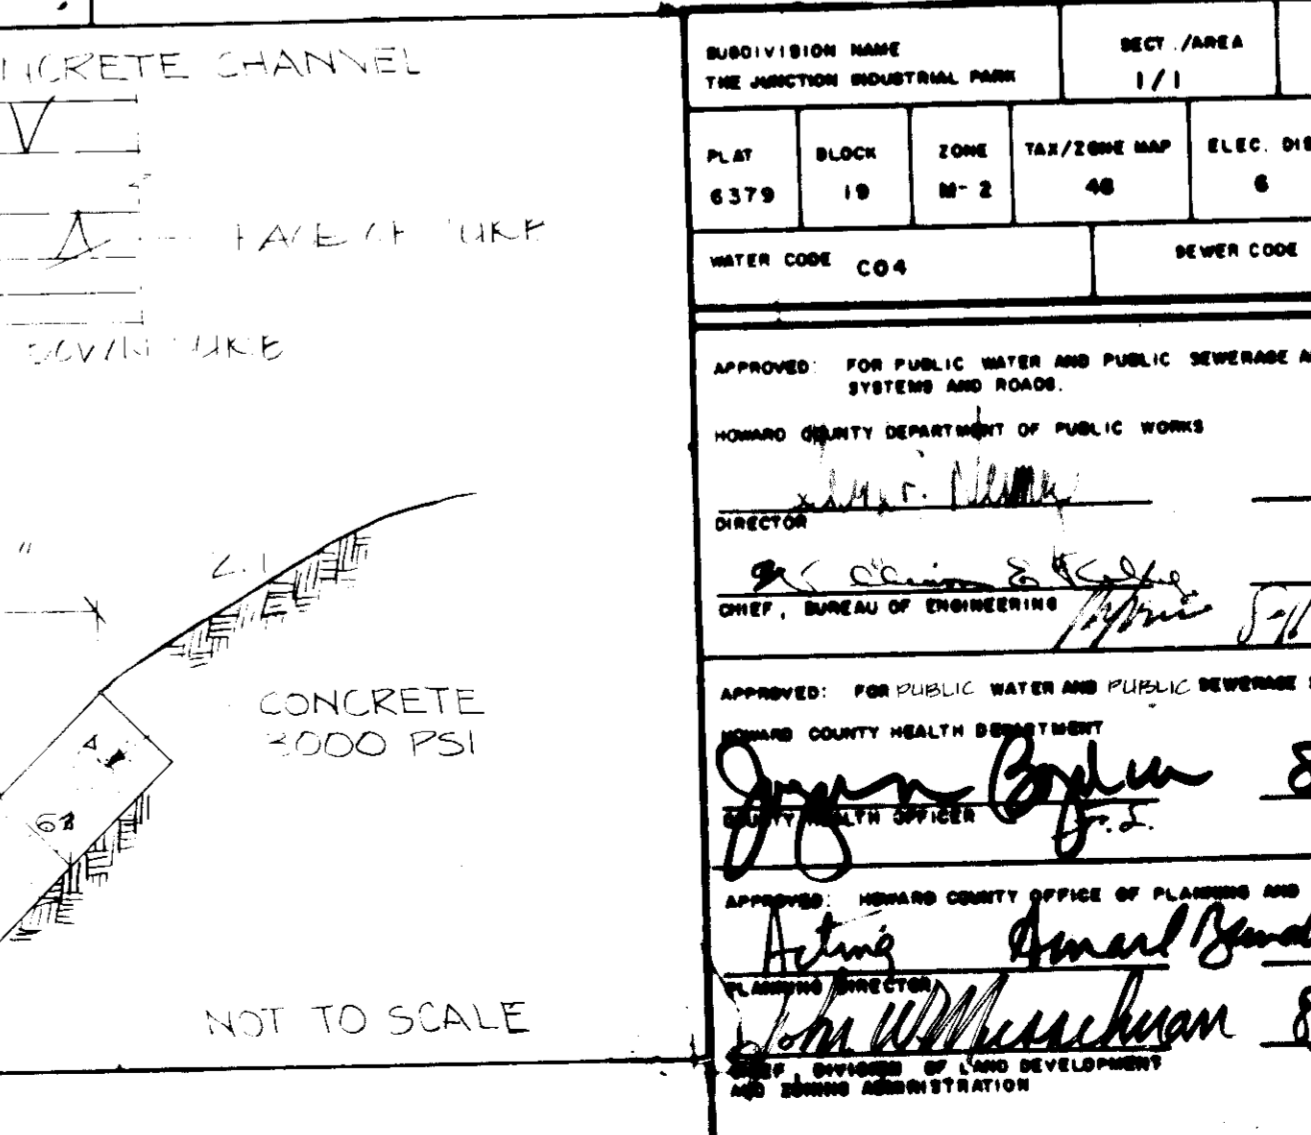 CONCRETE CHANNEL
FACE OF CURB
DOWN CURB
2:1
CONCRETE
3000 PSI
NOT TO SCALE
SUBDIVISION NAME
THE JUNCTION INDUSTRIAL PARK
SECT./AREA
1/1
PLAT
6379
BLOCK
19
ZONE
M-2
TAX/ZONE MAP
ELEC. DIS
6
WATER CODE C04
SEWER CODE
APPROVED: FOR PUBLIC WATER AND PUBLIC SEWERAGE
SYSTEMS AND ROADS.
HOWARD COUNTY DEPARTMENT OF PUBLIC WORKS
DIRECTOR
CHIEF, BUREAU OF ENGINEERING
APPROVED: FOR PUBLIC WATER AND PUBLIC SEWERAGE
HOWARD COUNTY HEALTH DEPARTMENT
COUNTY HEALTH OFFICER
APPROVED: HOWARD COUNTY OFFICE OF PLANNING AND
Acting
PLANNING DIRECTOR
John W Musselman
CHIEF, DIVISION OF LAND DEVELOPMENT
AND ZONING ADMINISTRATION